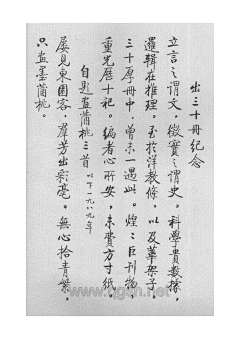 出三十冊纪念
立言之谓文，徵实之谓史。科学贵数据，
逻辑在推理。至於洋教條，以及革架子，
三十厚冊中，曾未一遇此。煌煌巨刊物，
重光歷十祀。编者心所安，未费方寸纸。
自题画蒲桃三首 以下一九八九年
屡见东园客，群芳出彩毫。无心拾青紫，
只画墨蒲桃。